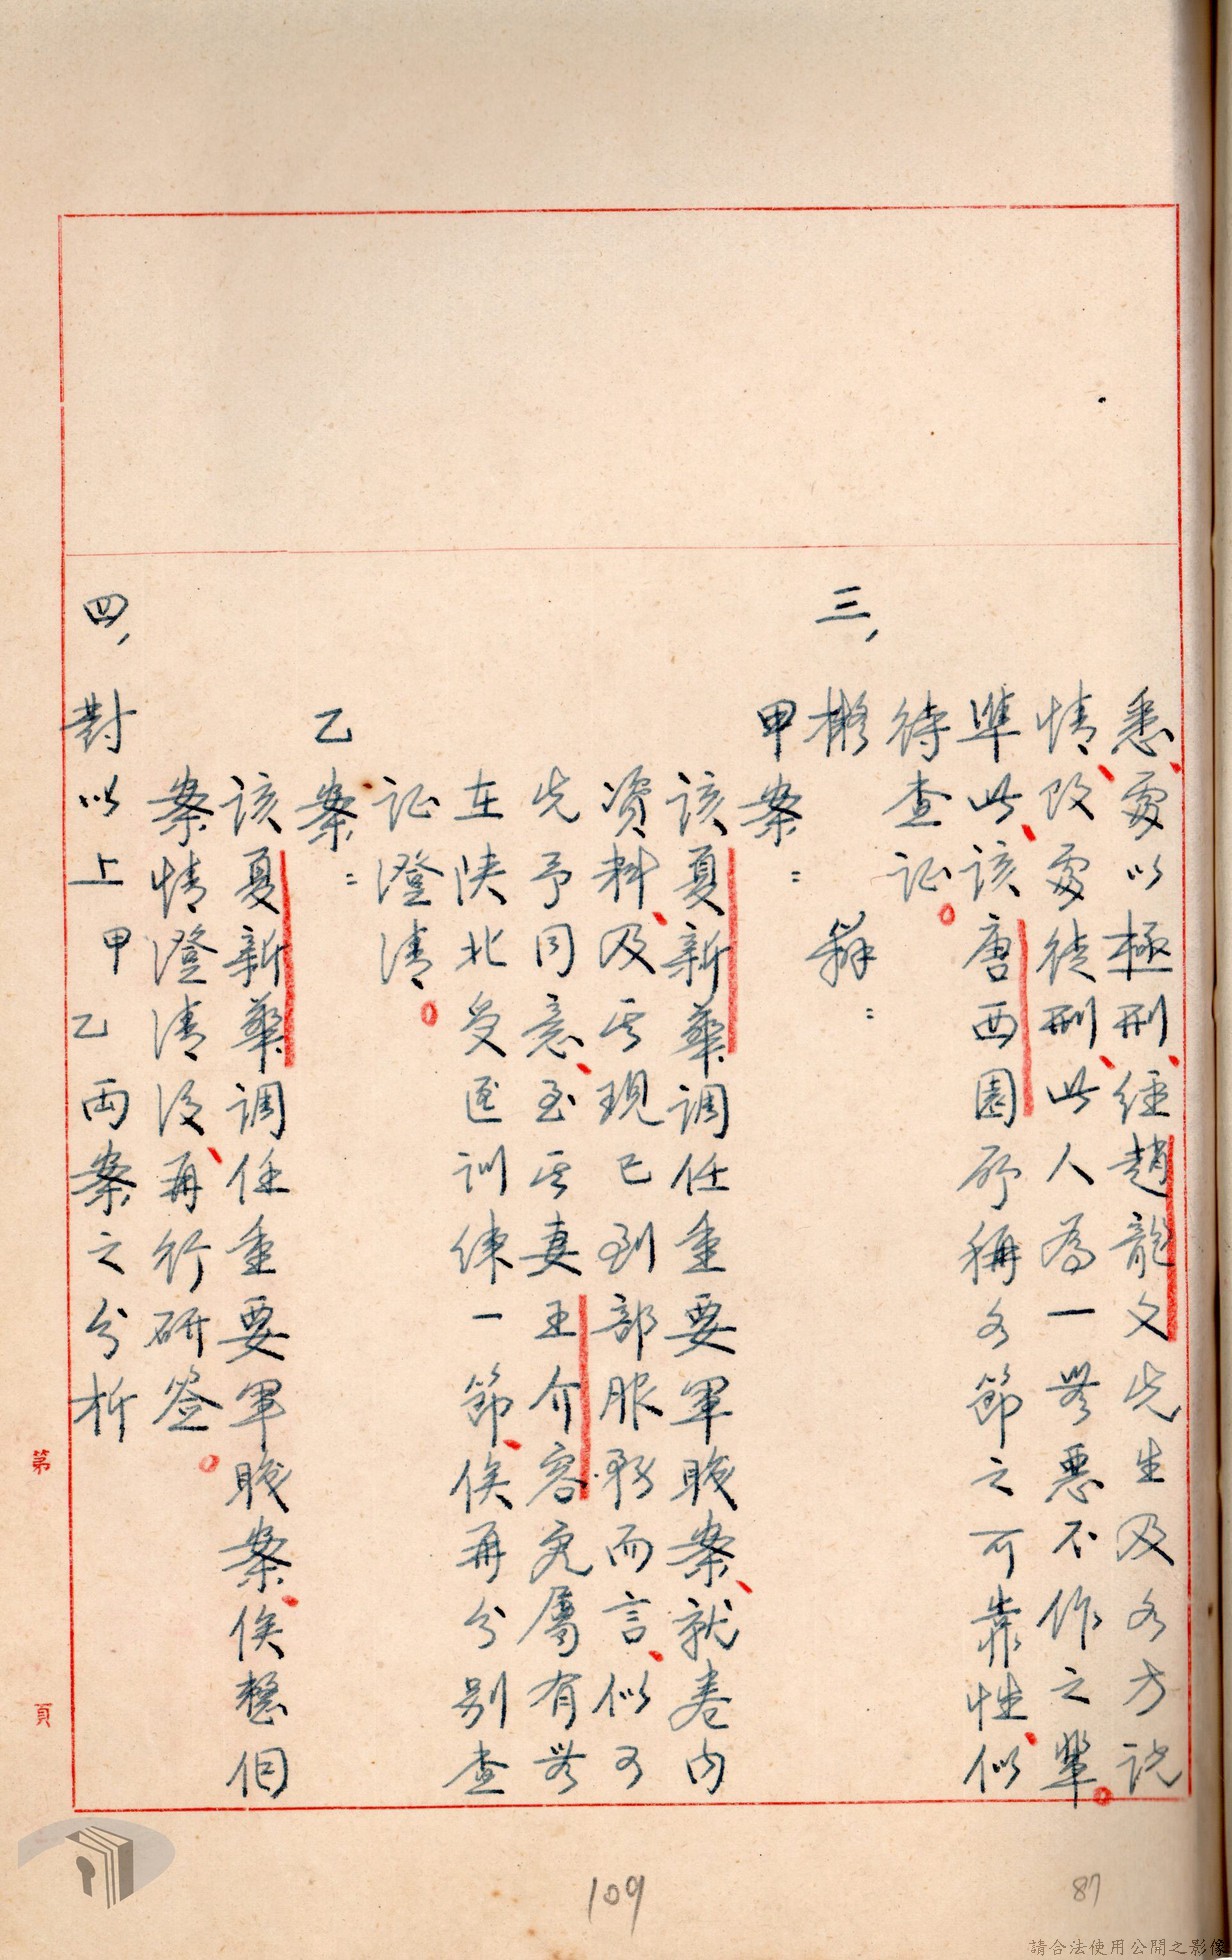 悉、處以極刑、經趙龍文先生及各方說
情、改處徒刑、此人為一無惡不作之輩。
準此、該唐西園所稱各節之可靠性、似
待查证。
三、擬辦：
甲案：
該夏新華調任重要軍职案、就卷内
资料、及其現已到部服務而言、似可
先予同意、至其妻王介容究屬有無
在陕北受匪训練一節、俟再分别查
证澄清。
乙案：
該夏新華調任重要軍职案、俟整個
案情澄清後、再行研簽。
四、對以上甲乙兩案之分析
第
頁
109
87
請合法使用公開之影像